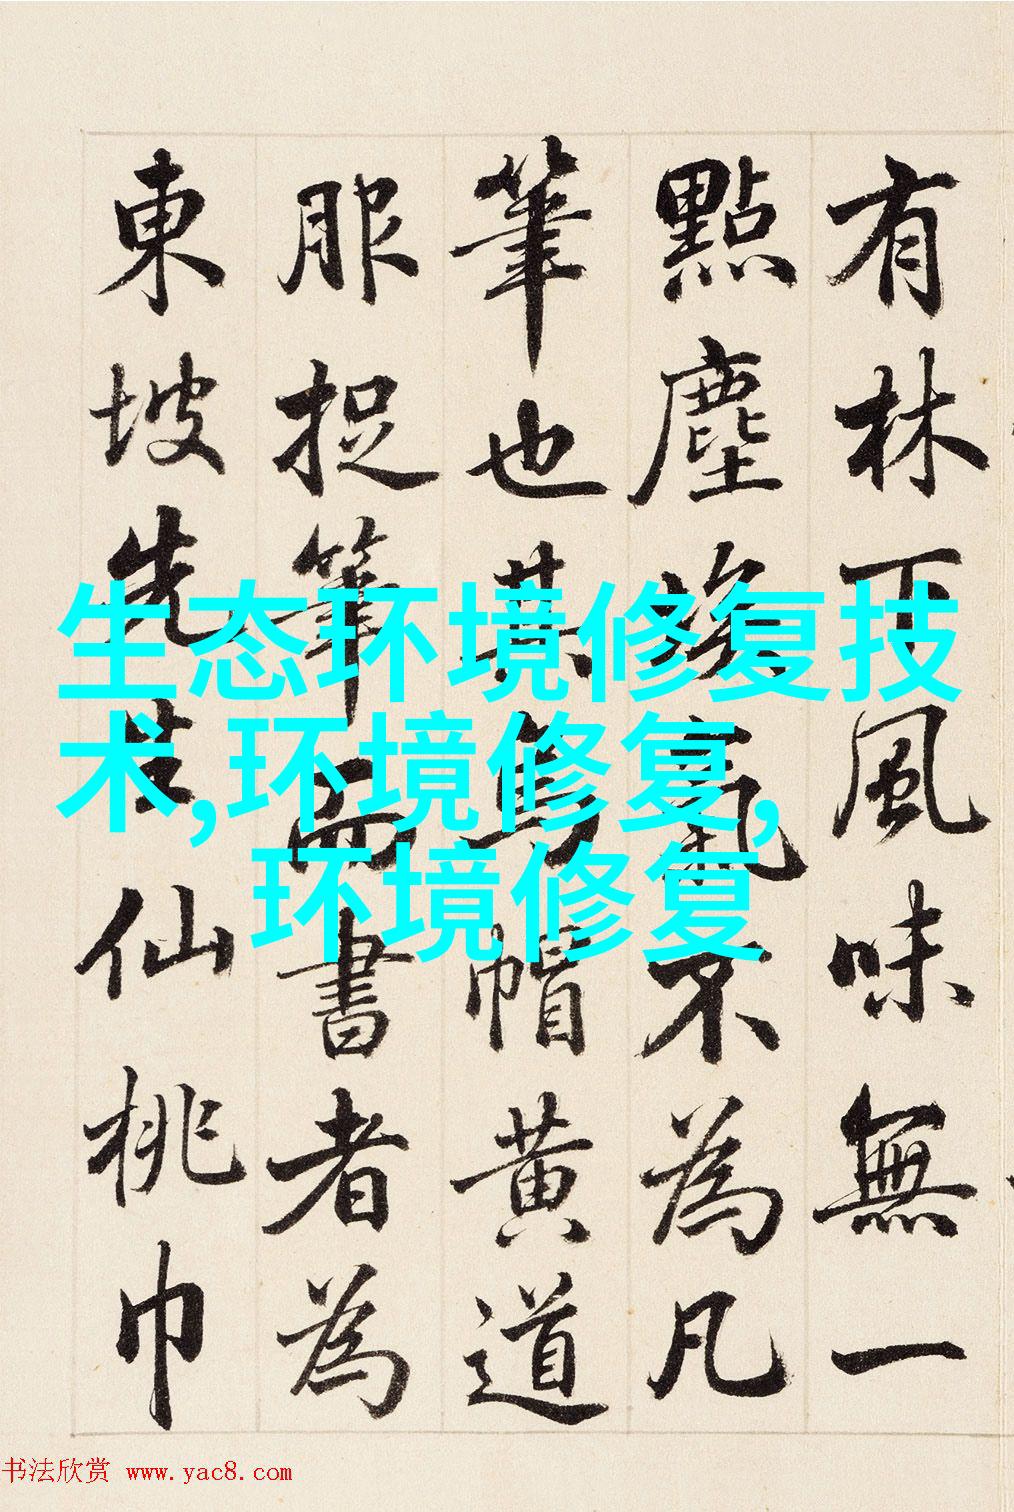 有林下風味無一
點塵埃氣不為凡
筆也其烏帽黃道
服捉筆而書者為
東坡先生仙桃巾
生态环境修复技
术,环境修复,
环境修复
书法欣赏 www.yac8.com